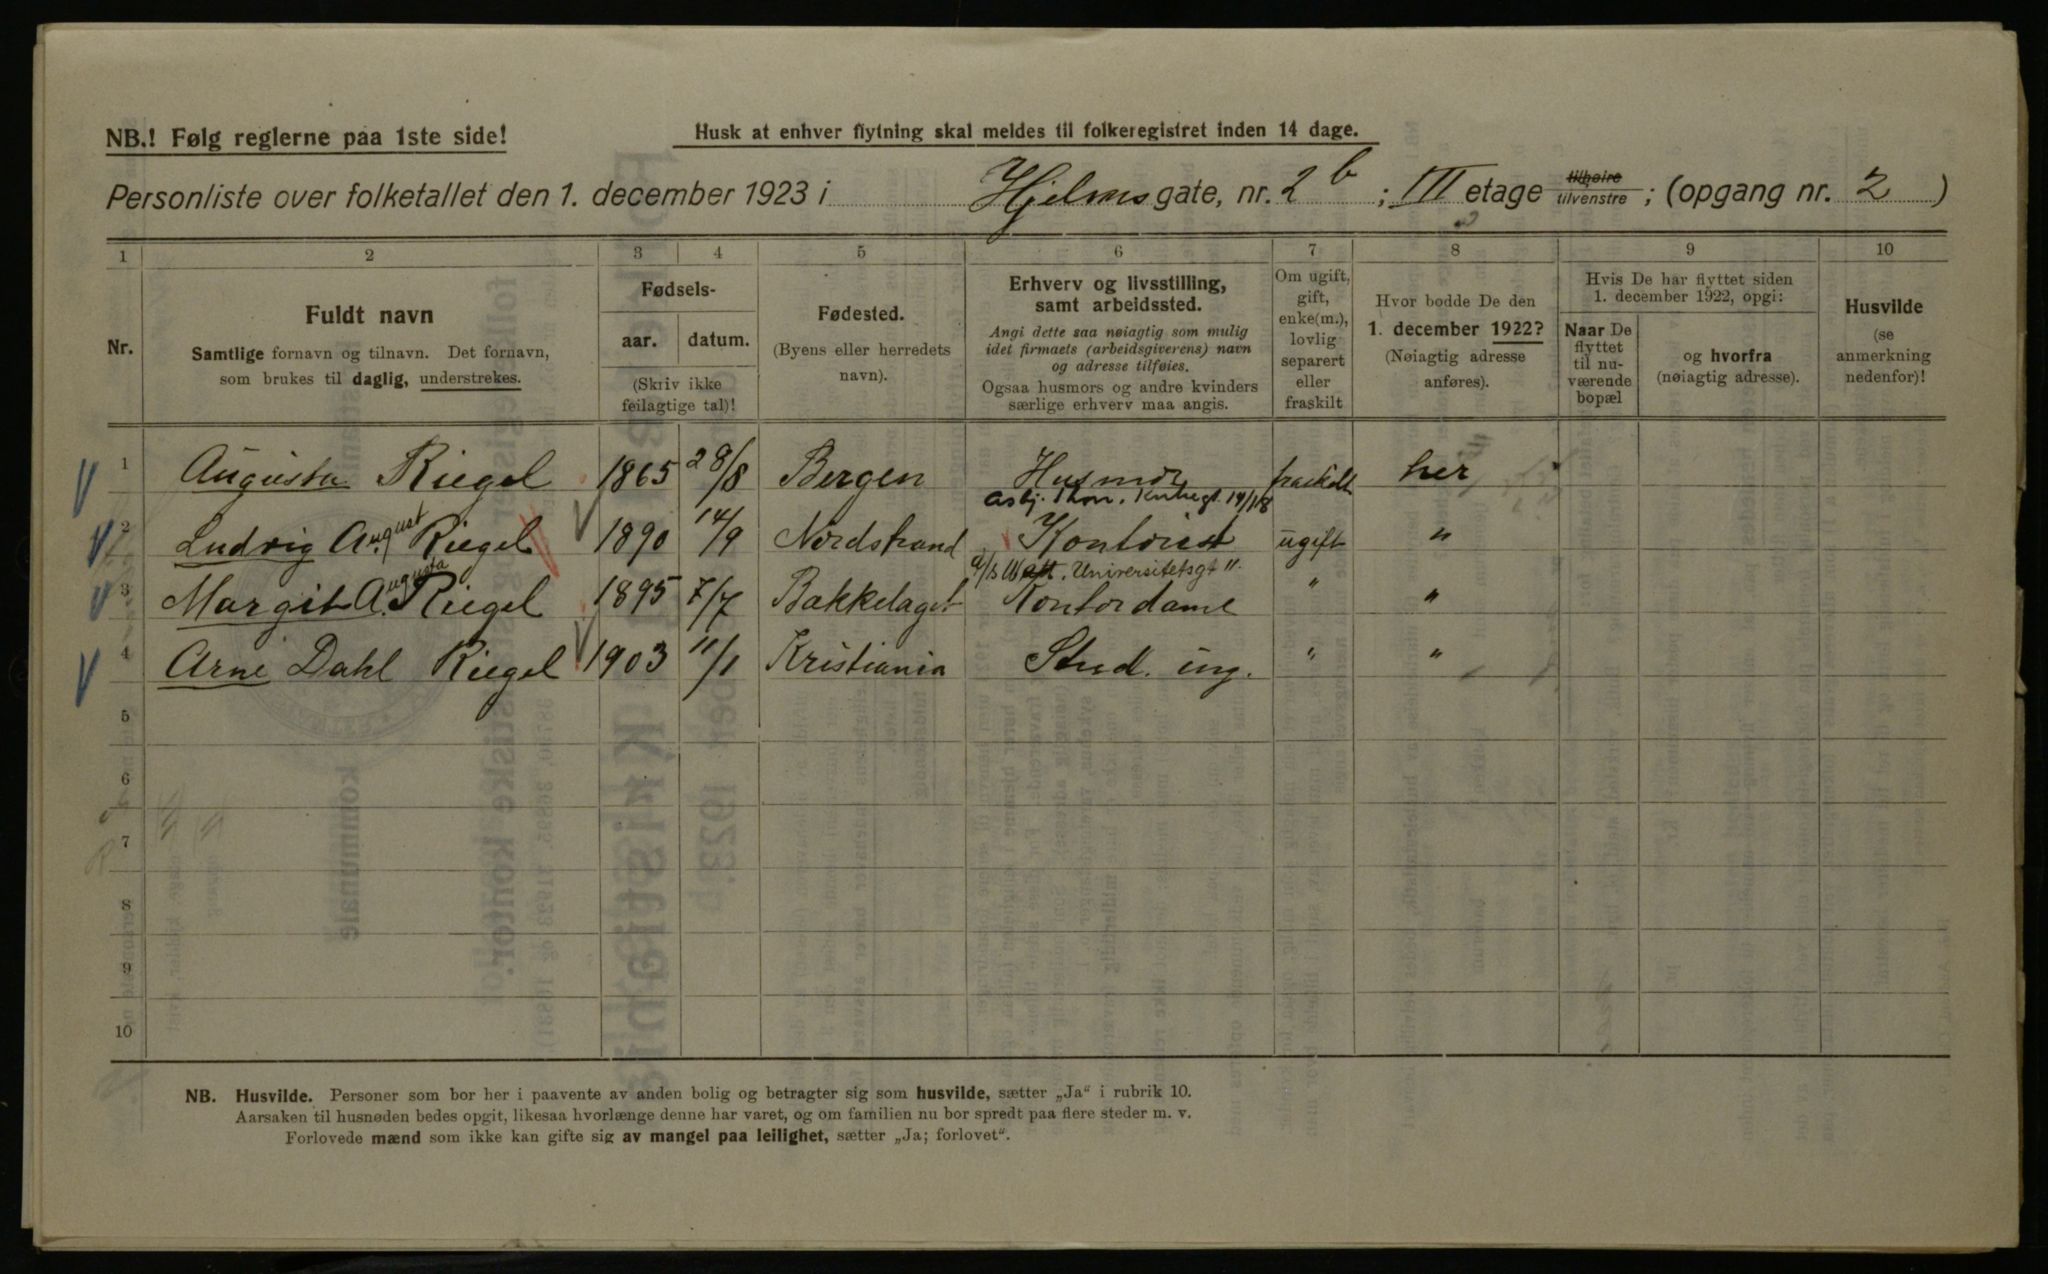 NB.! Følg reglerne paa 1ste side!
Husk at enhver flytning skal meldes til folkeregistret inden 14 dage.
Personliste over folketallet den 1. december 1923 i Hjelms gate, nr. 2 b ; III etage tilhøire tilvenstre ; (opgang nr. 2 )
1 2 3 4 5 6 7 8 9 10
Nr.
Fuldt navn
Samtlige fornavn og tilnavn. Det fornavn,
som brukes til daglig, understrekes.
Fødsels-
aar. datum.
(Skriv ikke
feilagtige tal)!
Fødested.
(Byens eller herredets
navn).
Erhverv og livsstilling,
samt arbeidssted.
Angi dette saa nøiagtig som mulig
idet firmaets (arbeidsgiverens) navn
og adresse tilføies.
Ogsaa husmors og andre kvinders
særlige erhverv maa angis.
Om ugift,
gift,
enke(m.),
lovlig
separert
eller
fraskilt
Hvor bodde De den
1. december 1922?
(Nøiagtig adresse
anføres).
Hvis De har flyttet siden
1. december 1922, opgi:
Naar De
flyttet
til nu-
værende
bopæl
og hvorfra
(nøiagtig adresse).
Husvilde
(se
anmerkning
nedenfor)!
1 Augusta Riegel 1865 28/8 Bergen Husmor fraskilt her
Asbj. Thon.
2 Ludvig August Riegel 1890 14/9 Nordstrand Kontorist ugift "
A/S Watt, Universitetsgt 11.
3 Margit Augusta Riegel 1895 7/7 Bakkelaget Kontordame " "
4 Arne Dahl Riegel 1903 11/1 Kristiania Stud. ing. " "
5
6
7
8
9
10
NB. Husvilde. Personer som bor her i paavente av anden bolig og betragter sig som husvilde, sætter „Ja" i rubrik 10.
Aarsaken til husnøden bedes opgit, likesaa hvorlænge denne har varet, og om familien nu bor spredt paa flere steder m. v.
Forlovede mænd som ikke kan gifte sig av mangel paa leilighet, sætter „Ja; forlovet".